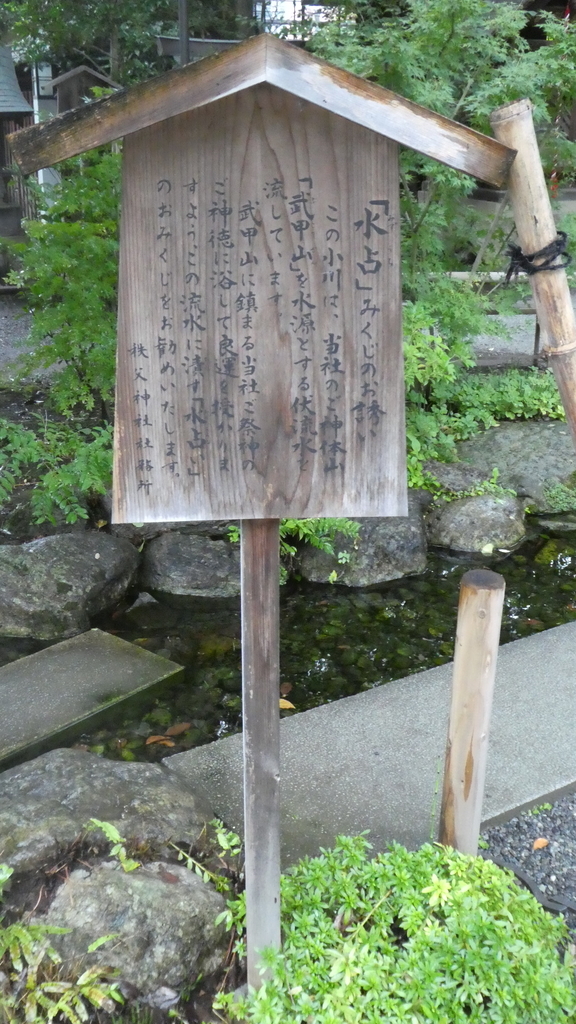 「水占」みくじのお誘い
この小川は、当社のご神体山
「武甲山」を水源とする伏流水を
流しています。
武甲山に鎮まる当社ご祭神の
ご神徳に浴して良運を授かりま
すようこの流水に浸す「水占い」
のおみくじをお勧めいたします。
秩父神社社務所